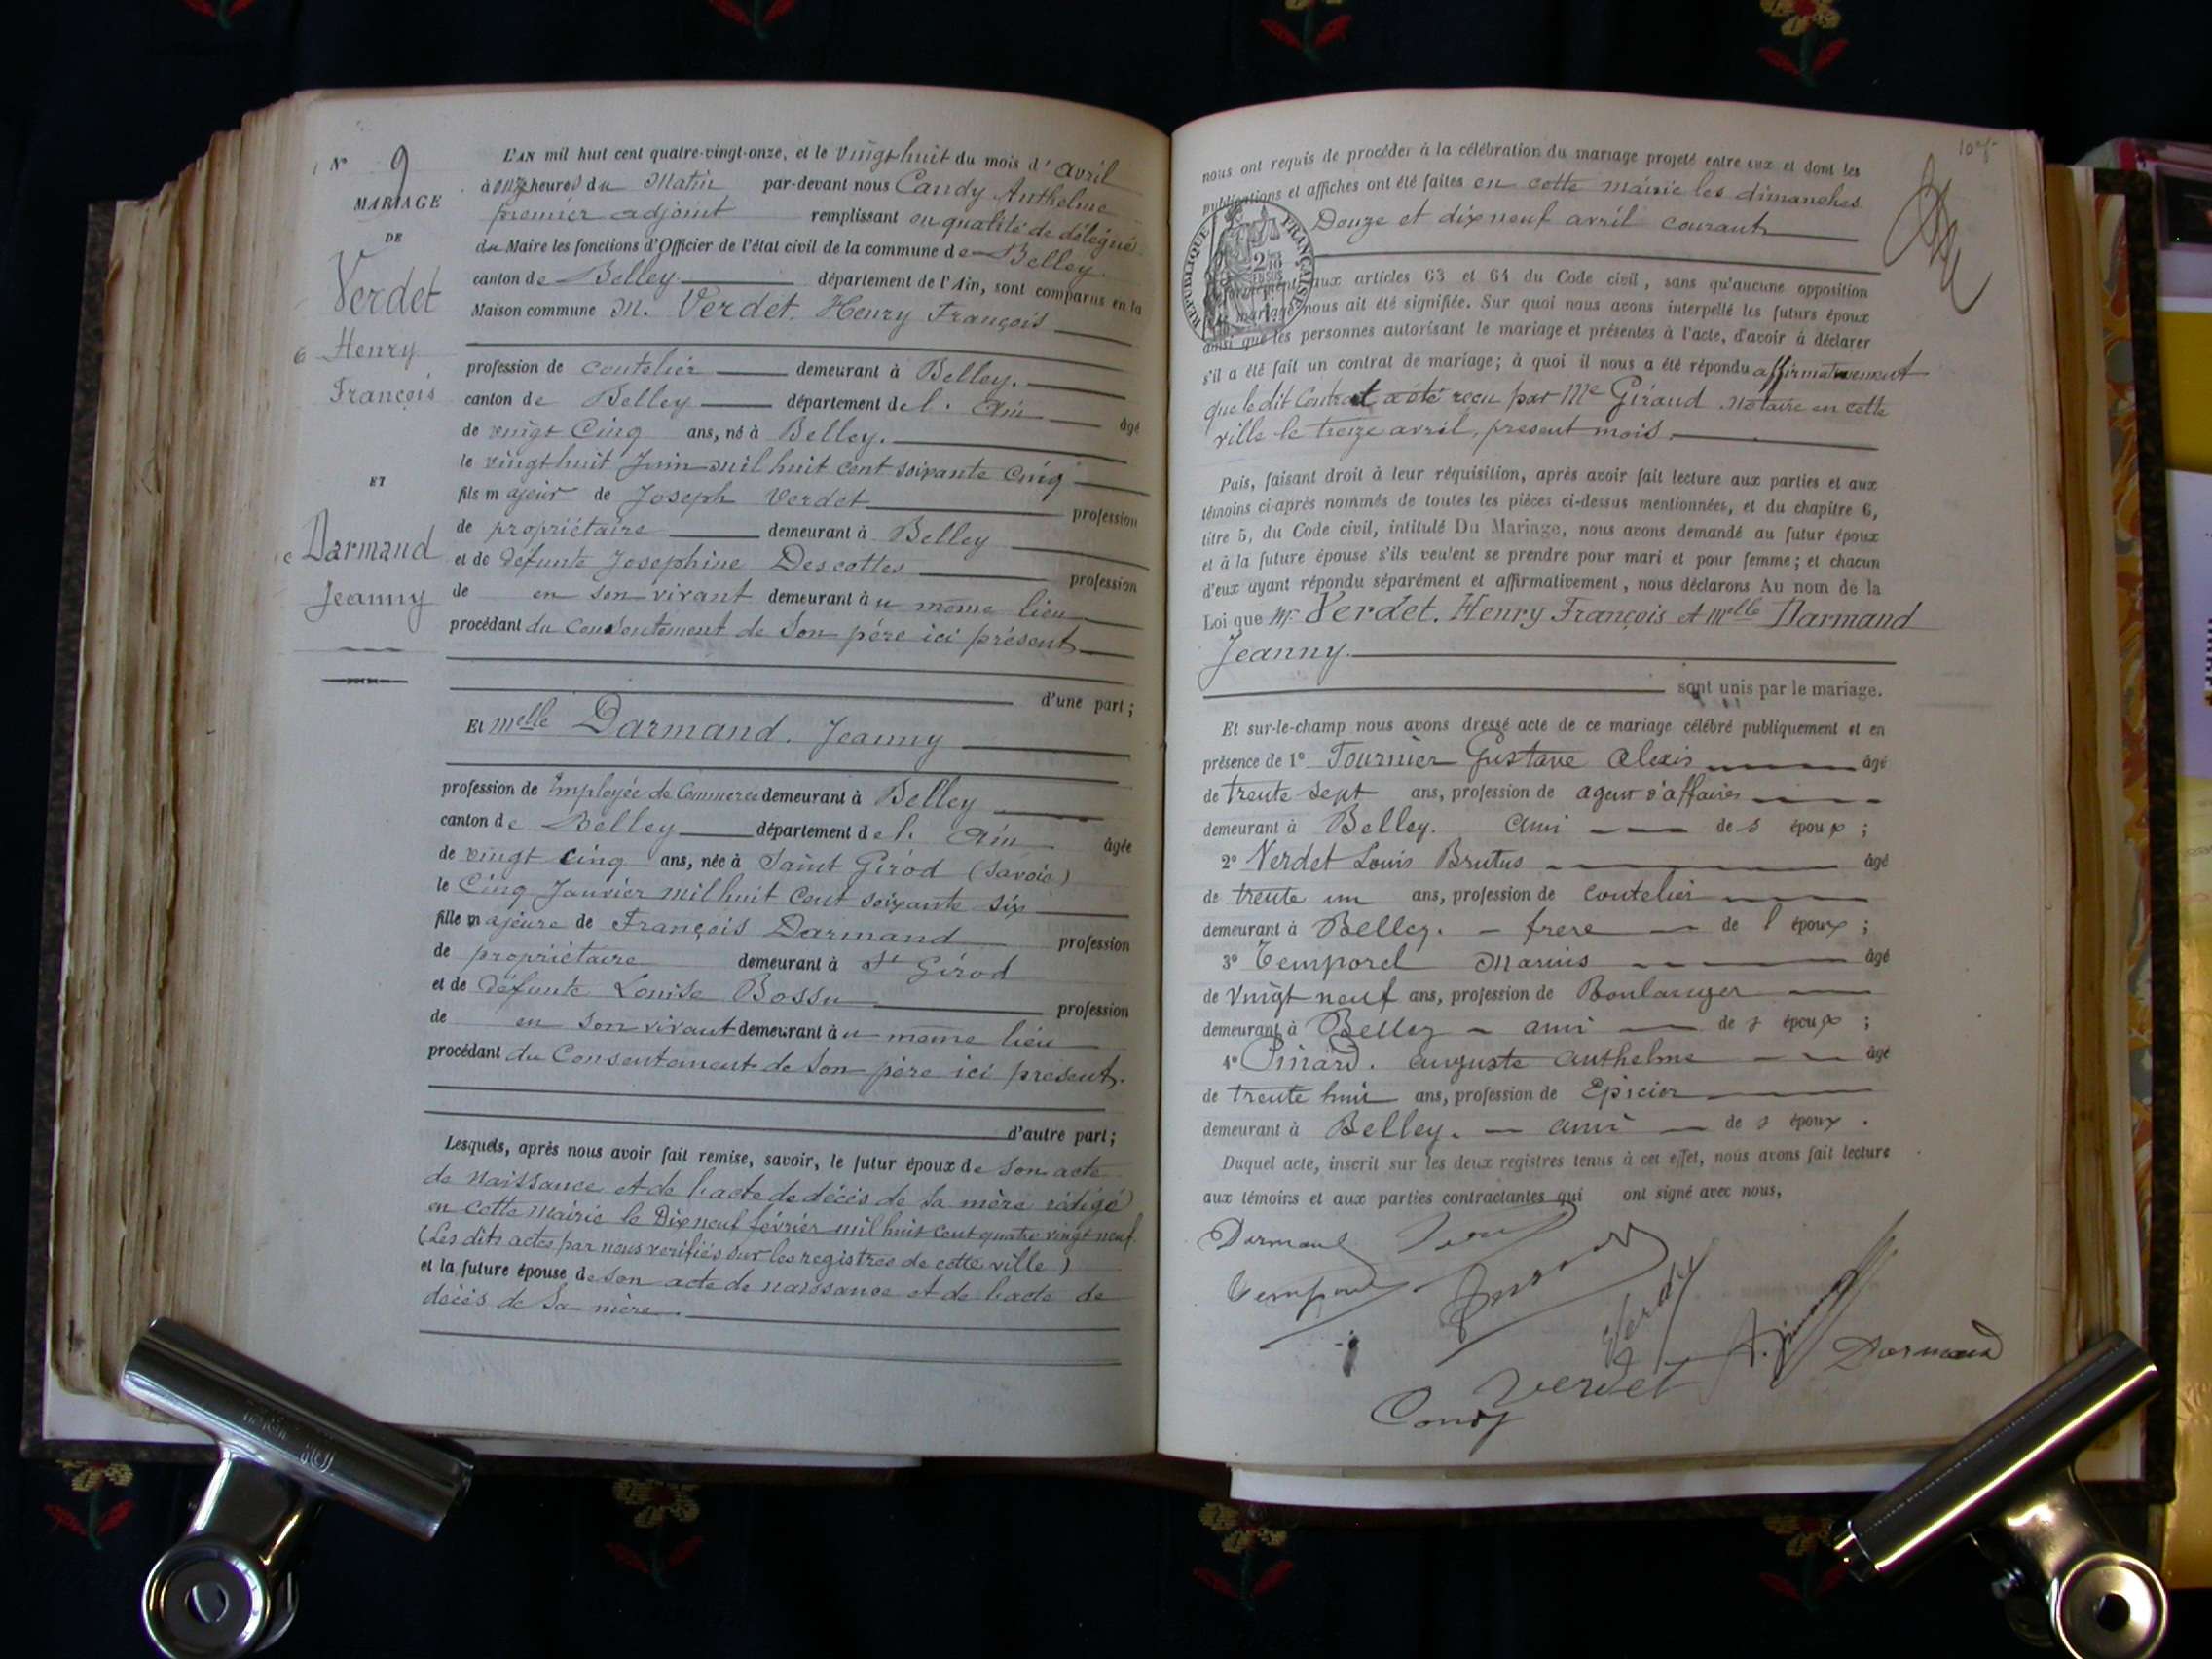 N° 9
MARIAGE
DE
Verdet
Henry
François
ET
Darmand
Jeanny
L'AN mil huit cent quatre-vingt-onze, et le vingt huit du mois d'avril
à onze heures du Matin par-devant nous Candy Anthelme
premier adjoint remplissant en qualité de délégué
du Maire les fonctions d'Officier de l'état civil de la commune de Belley
canton de Belley département de l'Ain, sont comparus en la
Maison commune M. Verdet. Henry François
profession de coutelier demeurant à Belley.
canton de Belley département de l'Ain âgé
de vingt Cinq ans, né à Belley.
le vingt huit Juin mil huit cent soixante Cinq
fils majeur de Joseph Verdet profession
de propriétaire demeurant à Belley
et de défunte Josephine Descottes profession
de en son vivant demeurant au même lieu
procédant du Consentement de Son père ici présent
d'une part;
Et Melle Darmand. Jeanny
profession de Employée de Commerce demeurant à Belley
canton de Belley département de l'Ain âgée
de vingt cinq ans, née à Saint Girod (Savoie)
le Cinq Janvier mil huit Cent soixante six
fille majeure de François Darmand profession
de propriétaire demeurant à St Girod
et de défunte Louise Bossu profession
de en son vivant demeurant au même lieu
procédant du Consentement de Son père ici présent.
d'autre part;
Lesquels, après nous avoir fait remise, savoir, le futur époux de Son acte
de naissance et de l'acte de décès de sa mère rédigé
en cette Mairie le Dix neuf février mil huit cent quatre vingt neuf.
(Les dits actes par nous vérifiés sur les registres de cette ville)
et la future épouse de son acte de naissance et de l'acte de
décès de Sa mère.
nous ont requis de procéder à la célébration du mariage projeté entre eux et dont les
publications et affiches ont été faites en cette mairie les dimanches
Douze et dix neuf avril courant
RÉPUBLIQUE FRANÇAISE
conformément aux articles 63 et 64 du Code civil, sans qu'aucune opposition
mariage nous ait été signifiée. Sur quoi nous avons interpellé les futurs époux
ainsi que les personnes autorisant le mariage et présentes à l'acte, d'avoir à déclarer
s'il a été fait un contrat de mariage; à quoi il nous a été répondu affirmativement
que le dit Contrat a été reçu par Me Giraud. notaire en cette
ville le treize avril, present mois.
Puis, faisant droit à leur réquisition, après avoir fait lecture aux parties et aux
témoins ci-après nommés de toutes les pièces ci-dessus mentionnées, et du chapitre 6,
titre 5, du Code civil, intitulé Du Mariage, nous avons demandé au futur époux
et à la future épouse s'ils veulent se prendre pour mari et pour femme; et chacun
d'eux ayant répondu séparément et affirmativement, nous déclarons Au nom de la
Loi que Mr Verdet. Henry François et Melle Darmand
Jeanny.
sont unis par le mariage.
Et sur-le-champ nous avons dressé acte de ce mariage célébré publiquement et en
présence de 1° Tournier Gustave Alexis âgé
de trente sept ans, profession de agent d'affaires
demeurant à Belley. ami des époux;
2° Verdet Louis Brutus âgé
de trente un ans, profession de coutelier
demeurant à Belley. - frere - de l'époux;
3° Temporel Marius âgé
de vingt neuf ans, profession de Boulanger
demeurant à Belley - ami - des époux;
4° Pinard. Auguste Anthelme âgé
de trente huit ans, profession de Epicier
demeurant à Belley. - ami - des époux.
Duquel acte, inscrit sur les deux registres tenus à cet effet, nous avons fait lecture
aux témoins et aux parties contractantes qui ont signé avec nous,
Darmand
Verdet
Verdet
Darmand
Candy